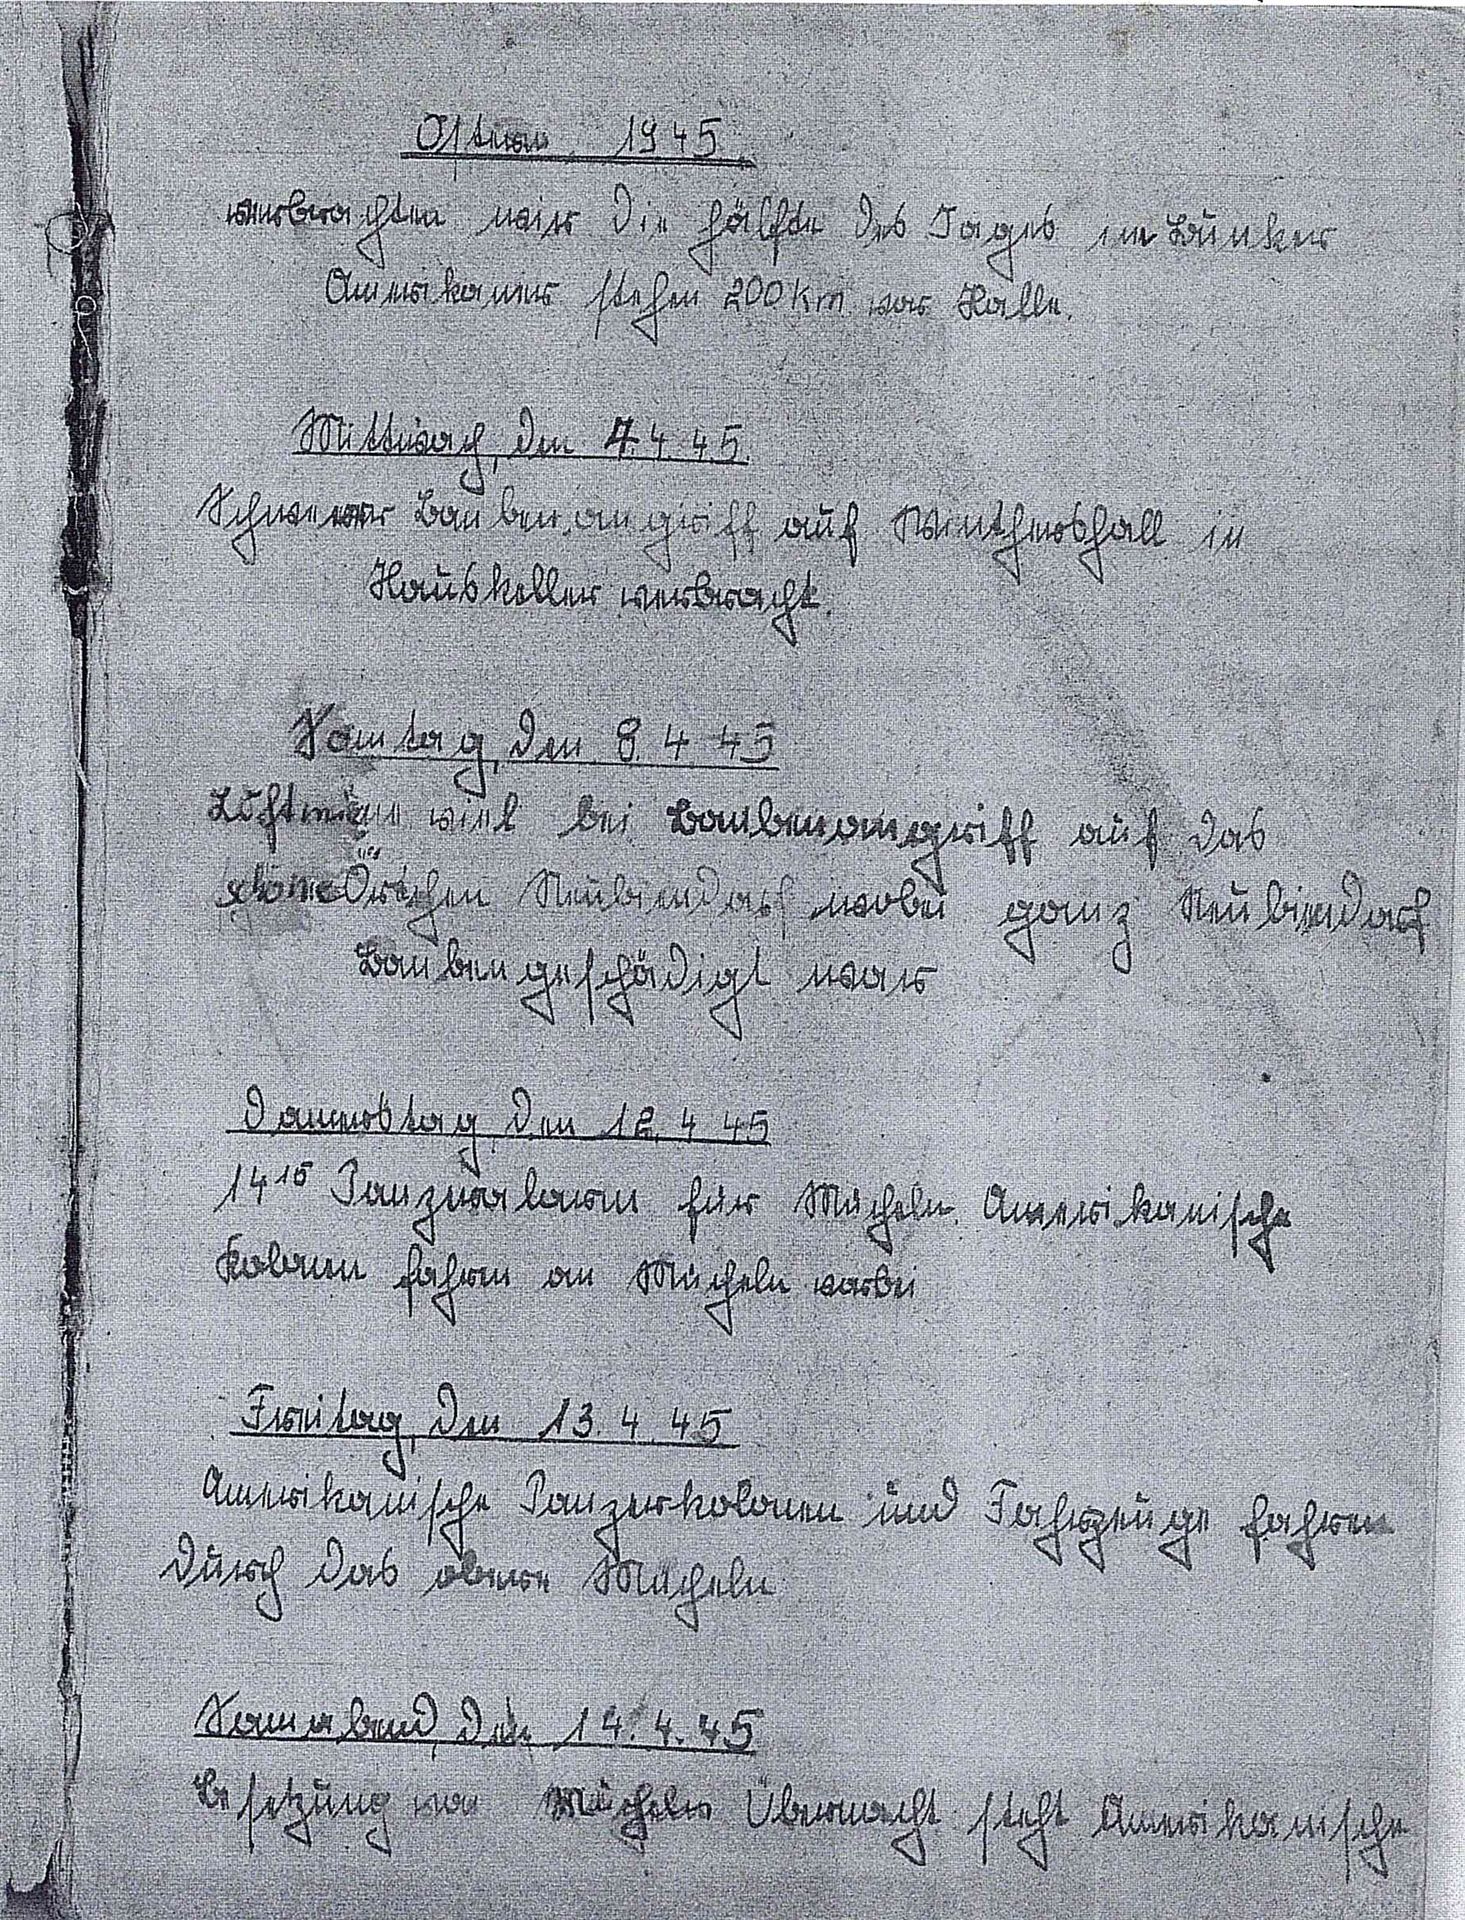 Ostern 1945
verbrachten wir die Hälfte des Tages im Bunker
Amerikaner stehen 200 km vor Halle.
Mittwoch, den 4.4.45.
Schwerer Bombenangriff auf Wintershall in
Hauskeller verbracht.
Sonntag, den 8.4.45
Luftmine viel bei Bombenangriff auf das
schöne Örtchen Neubiendorf wobei ganz Neubiendorf
Bombengeschädigt war
Donnerstag, den 12.4.45
14¹⁵ Panzeralarm für Mücheln. Amerikanische
Kolonen fahren an Mücheln vorbei
Freitag, den 13.4.45
Amerikanische Panzerkolonen und Fahrzeuge fahren
durch das obere Mücheln
Sonnabend, den 14.4.45
Besetzung von Mücheln Übernacht steht Amerikanische